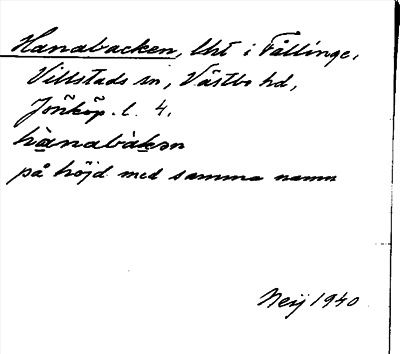 Hanabacken, lht i Fållinge,
Villstads sn, Västbo hd,
Jönköp. l. 4.
hànabàkən
på höjd med samma namn
Neij 1940